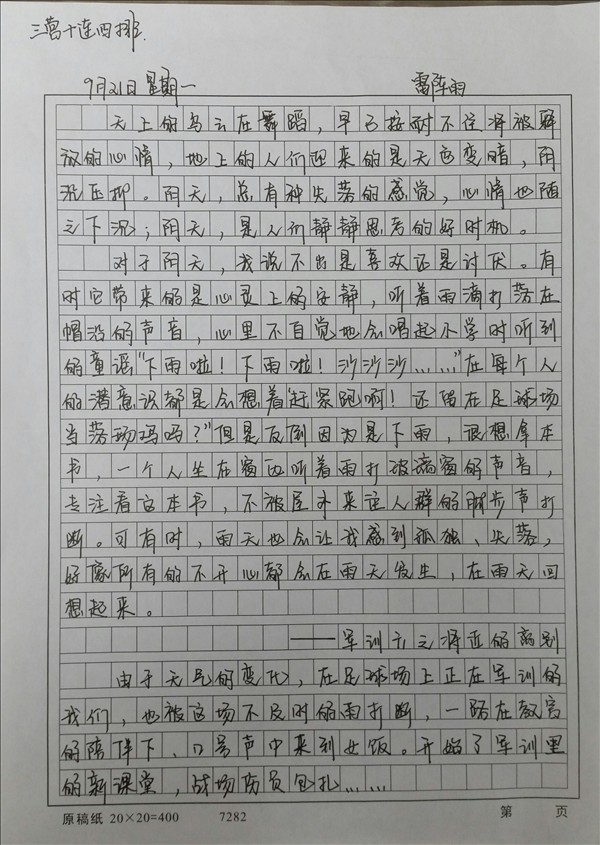 三营十连四排.
9月21日 星期一 雷阵雨
天上的乌云在舞蹈，早已按耐不住将被释
放的心情，地上的人们迎来的是天色变暗，阴
沉压抑。阴天，总有种失落的感觉，心情也随
之下沉；阴天，是人们静静思考的好时机。
对于阴天，我说不出是喜欢还是讨厌。有
时它带来的是心灵上的安静，听着雨滴打落在
帽沿的声音，心里不自觉地会唱起小学时听到
的童谣"下雨啦！下雨啦！沙沙沙……"在每个人
的潜意识都是会想着"赶紧跑啊！还留在足球场
当落汤鸡吗？"但是反倒因为是下雨，很想拿本
书，一个人坐在窗边听着雨打玻璃窗的声音，
专注看这本书，不被屋外来往人群的脚步声打
断。可有时，雨天也会让我感到孤独、失落，
好像所有的不开心都会在雨天发生，在雨天回
想起来。
——军训六之将近的离别
由于天气的变化，在足球场上正在军训的
我们，也被这场不及时的雨打断，一路在教官
的陪伴下、口号声中来到女饭。开始了军训里
的新课堂，战场伤员包扎……
原稿纸 20×20=400 7282 第 页